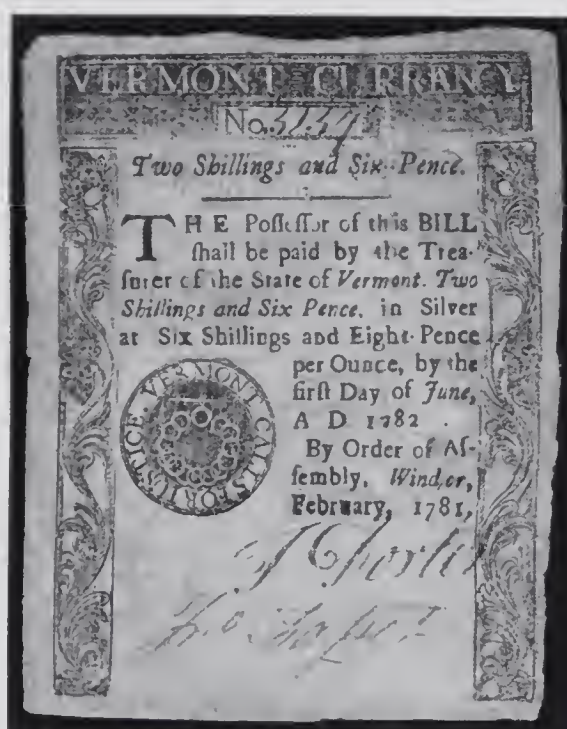 VERMONT CURRANCY
No. 3239
Two Shillings and Six-Pence.
THE Poſſeſſor of this BILL
ſhall be paid by the Trea-
ſurer of the State of Vermont. Two
Shillings and Six Pence, in Silver
at Six Shillings and Eight-Pence
per Ounce, by the
firſt Day of June,
A D 1782 .
By Order of Aſ-
ſembly, Windſor,
February, 1781,
VERMONT CALLS FOR JUSTICE.